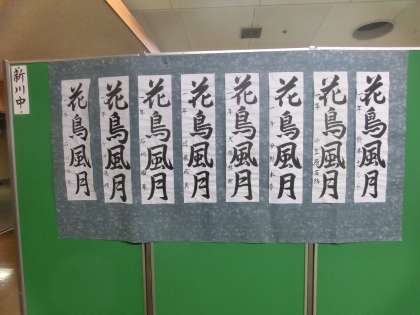 新川中
花鳥風月
花鳥風月
花鳥風月
花鳥風月
花鳥風月
花鳥風月
花鳥風月
花鳥風月